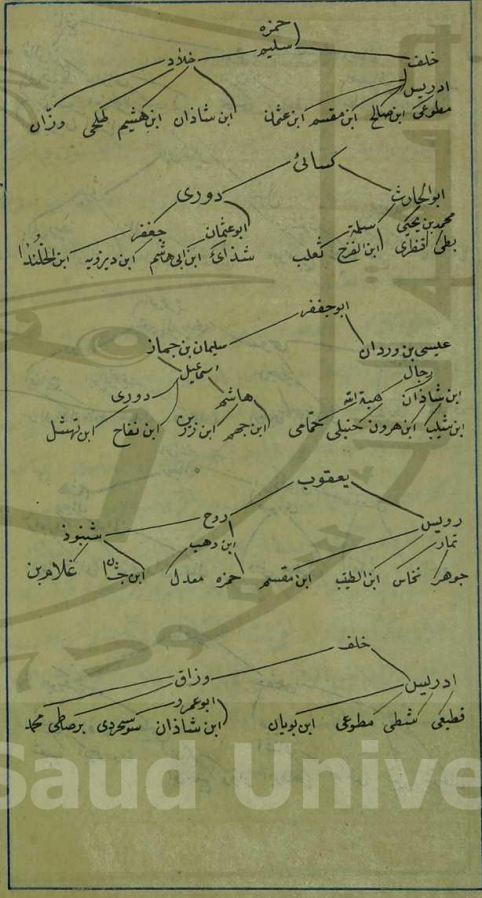 حمزه
سليم
خلف خلاد
ادريس
مطوعى ابن صالح ابن مقسم ابن عثمان ابن شاذان ابن هشيم طلحى وزّان
كسائى
ابو الحارث دورى
محمد بن يحيى سلمة ابو عثمان جعفر
بطى قنطرى ابن الفرج ثعلب شذائى ابن ابى هاشم ابن ديزويه ابن الجُلُندا
ابو جعفر
عليسى بن وردان سليمان بن جماز
رجال اسمعيل
ابن شاذان هبة الله هاشم دورى
ابن شبيب ابن هرون حنبلى حمامى ابن جهم ابن رزين ابن نفاح ابن نهشل
يعقوب
رويس روح
تمار ابن وهب شنبوذ
جوهر نخاس ابن الطيّب ابن مقسم حمزه معدل غلام بن
خلف
ادريس وزاق
ابو عمرو
قطيعى شطى مطوعى ابن بويان ابن شاذان سوسنجردى برصاطى محمد
Saud Unive